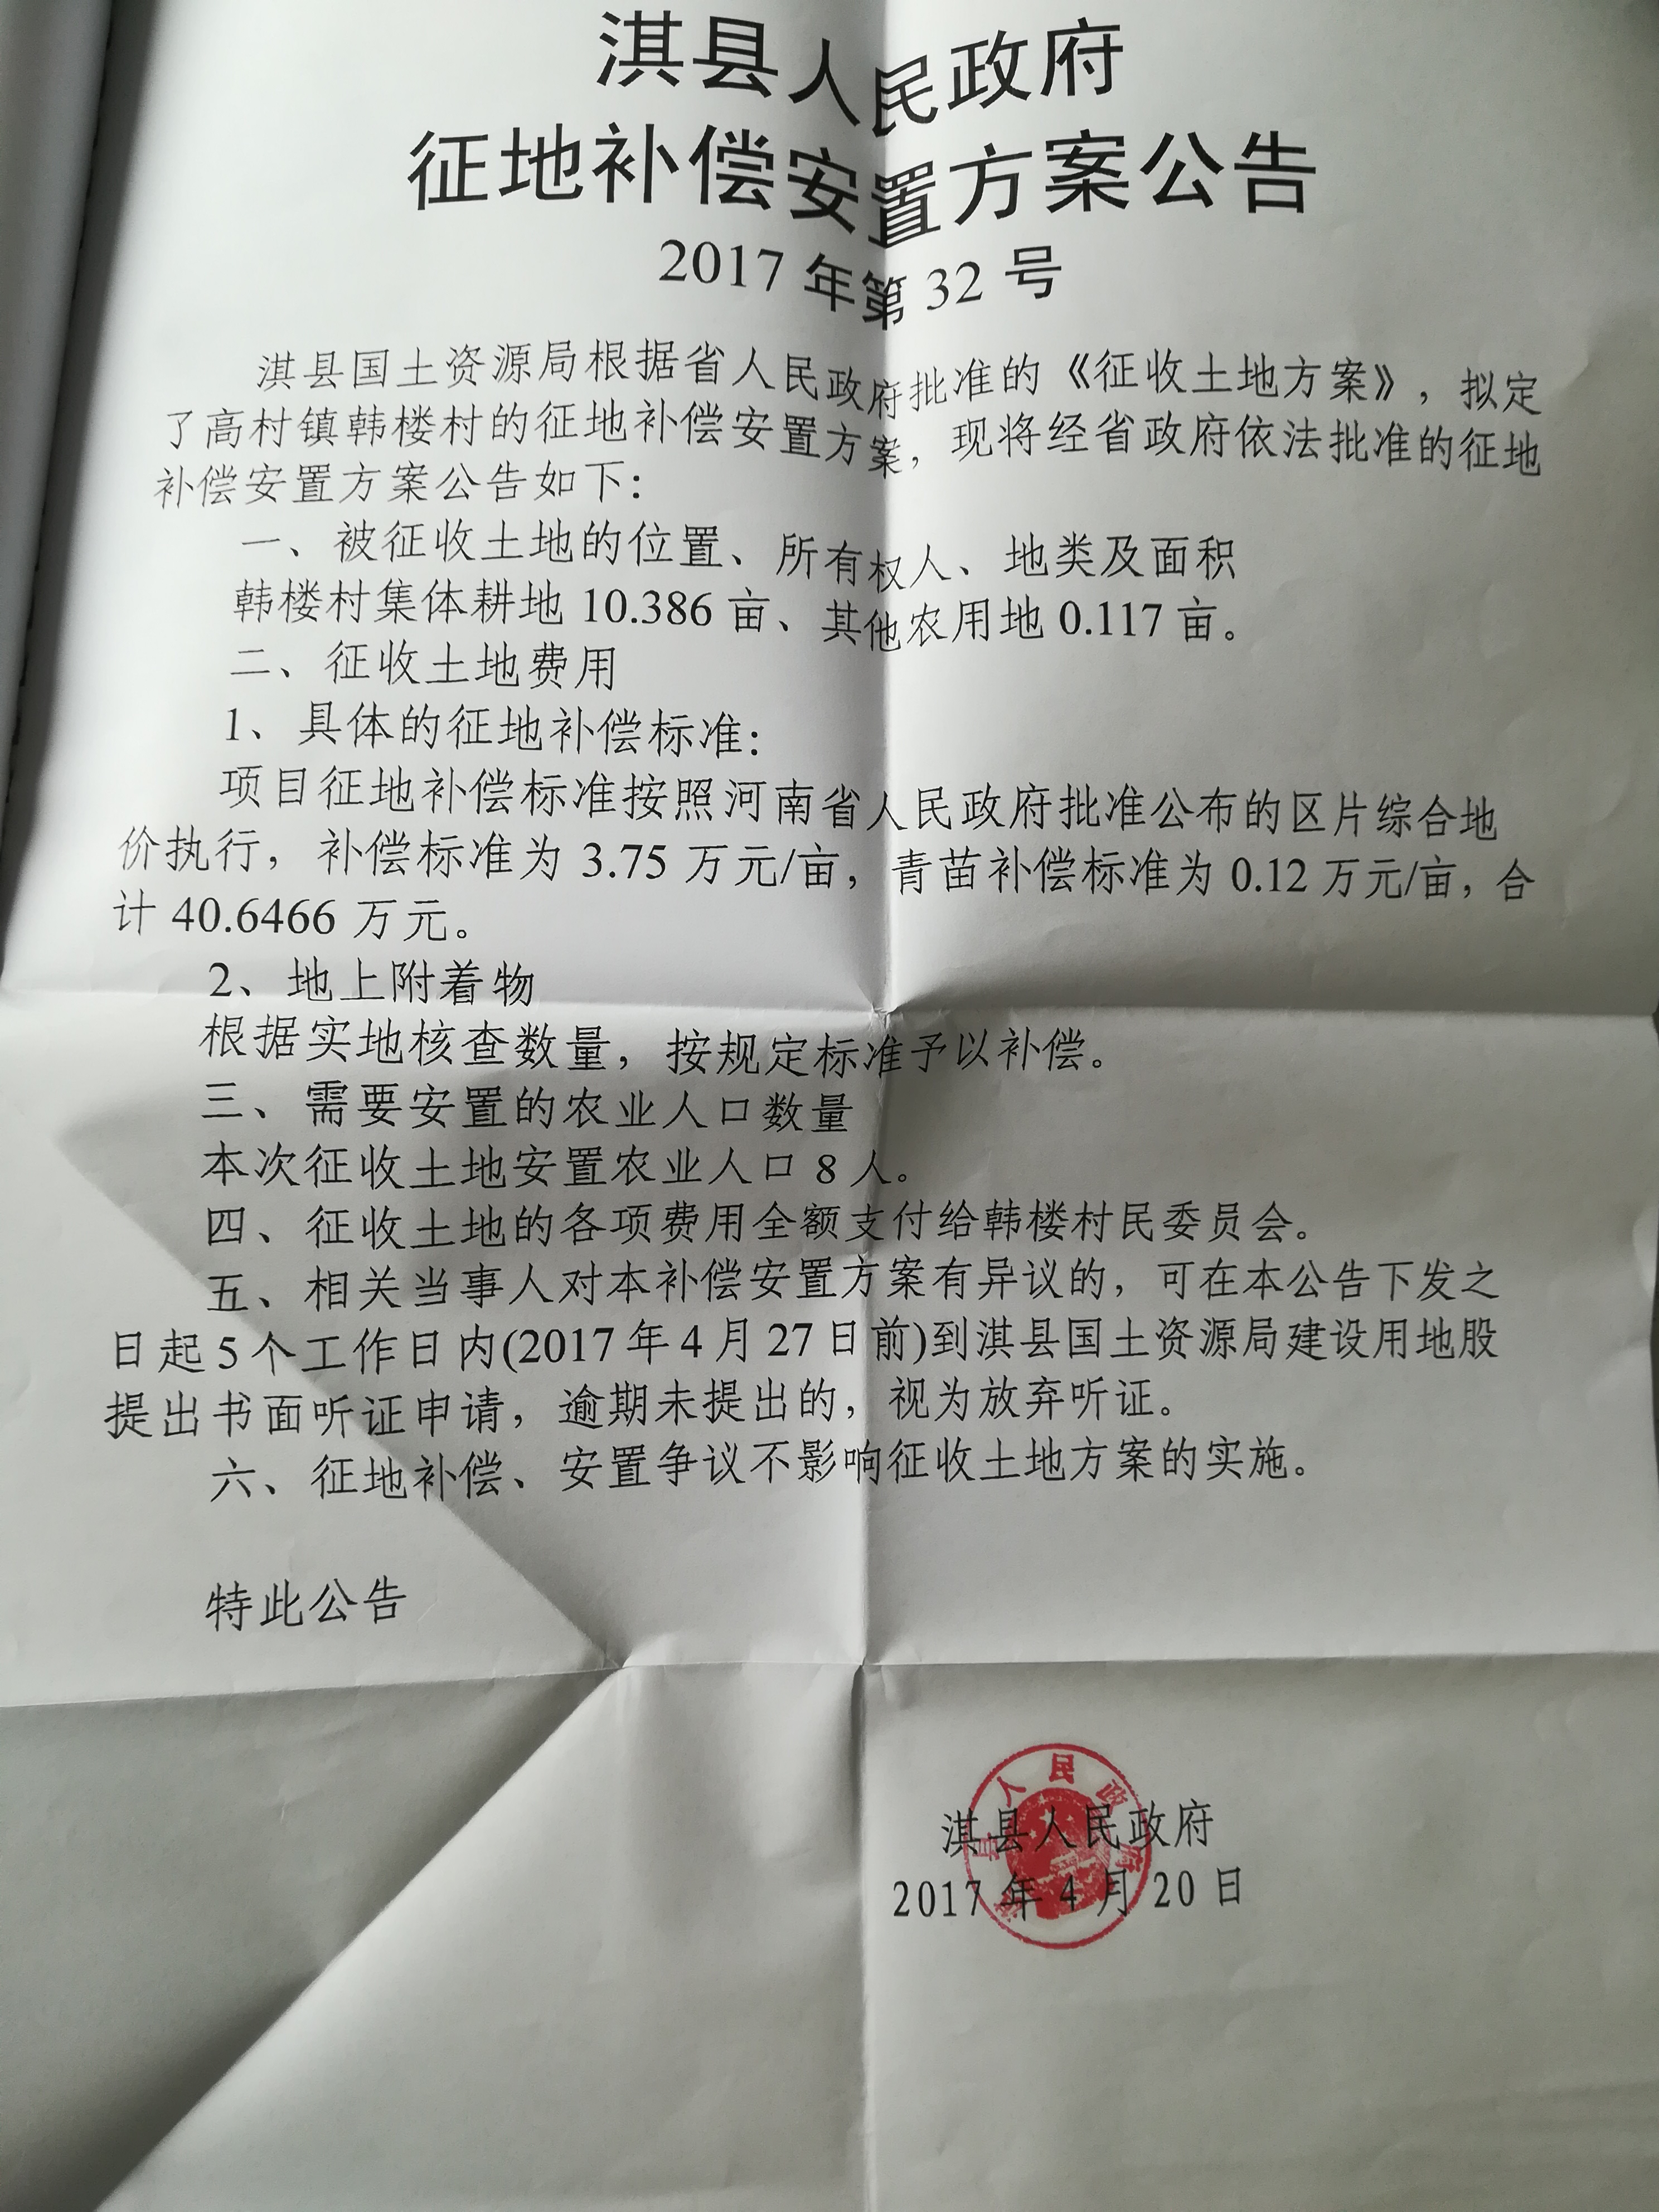 淇县人民政府
征地补偿安置方案公告
2017年第32号
淇县国土资源局根据省人民政府批准的《征收土地方案》，拟定
了高村镇韩楼村的征地补偿安置方案，现将经省政府依法批准的征地
补偿安置方案公告如下：
一、被征收土地的位置、所有权人、地类及面积
韩楼村集体耕地10.386亩、其他农用地0.117亩。
二、征收土地费用
1、具体的征地补偿标准：
项目征地补偿标准按照河南省人民政府批准公布的区片综合地
价执行，补偿标准为3.75万元/亩，青苗补偿标准为0.12万元/亩，合
计40.6466万元。
2、地上附着物
根据实地核查数量，按规定标准予以补偿。
三、需要安置的农业人口数量
本次征收土地安置农业人口8人。
四、征收土地的各项费用全额支付给韩楼村民委员会。
五、相关当事人对本补偿安置方案有异议的，可在本公告下发之
日起5个工作日内(2017年4月27日前)到淇县国土资源局建设用地股
提出书面听证申请，逾期未提出的，视为放弃听证。
六、征地补偿、安置争议不影响征收土地方案的实施。
特此公告
淇县人民政府
2017年4月20日
淇县人民政府